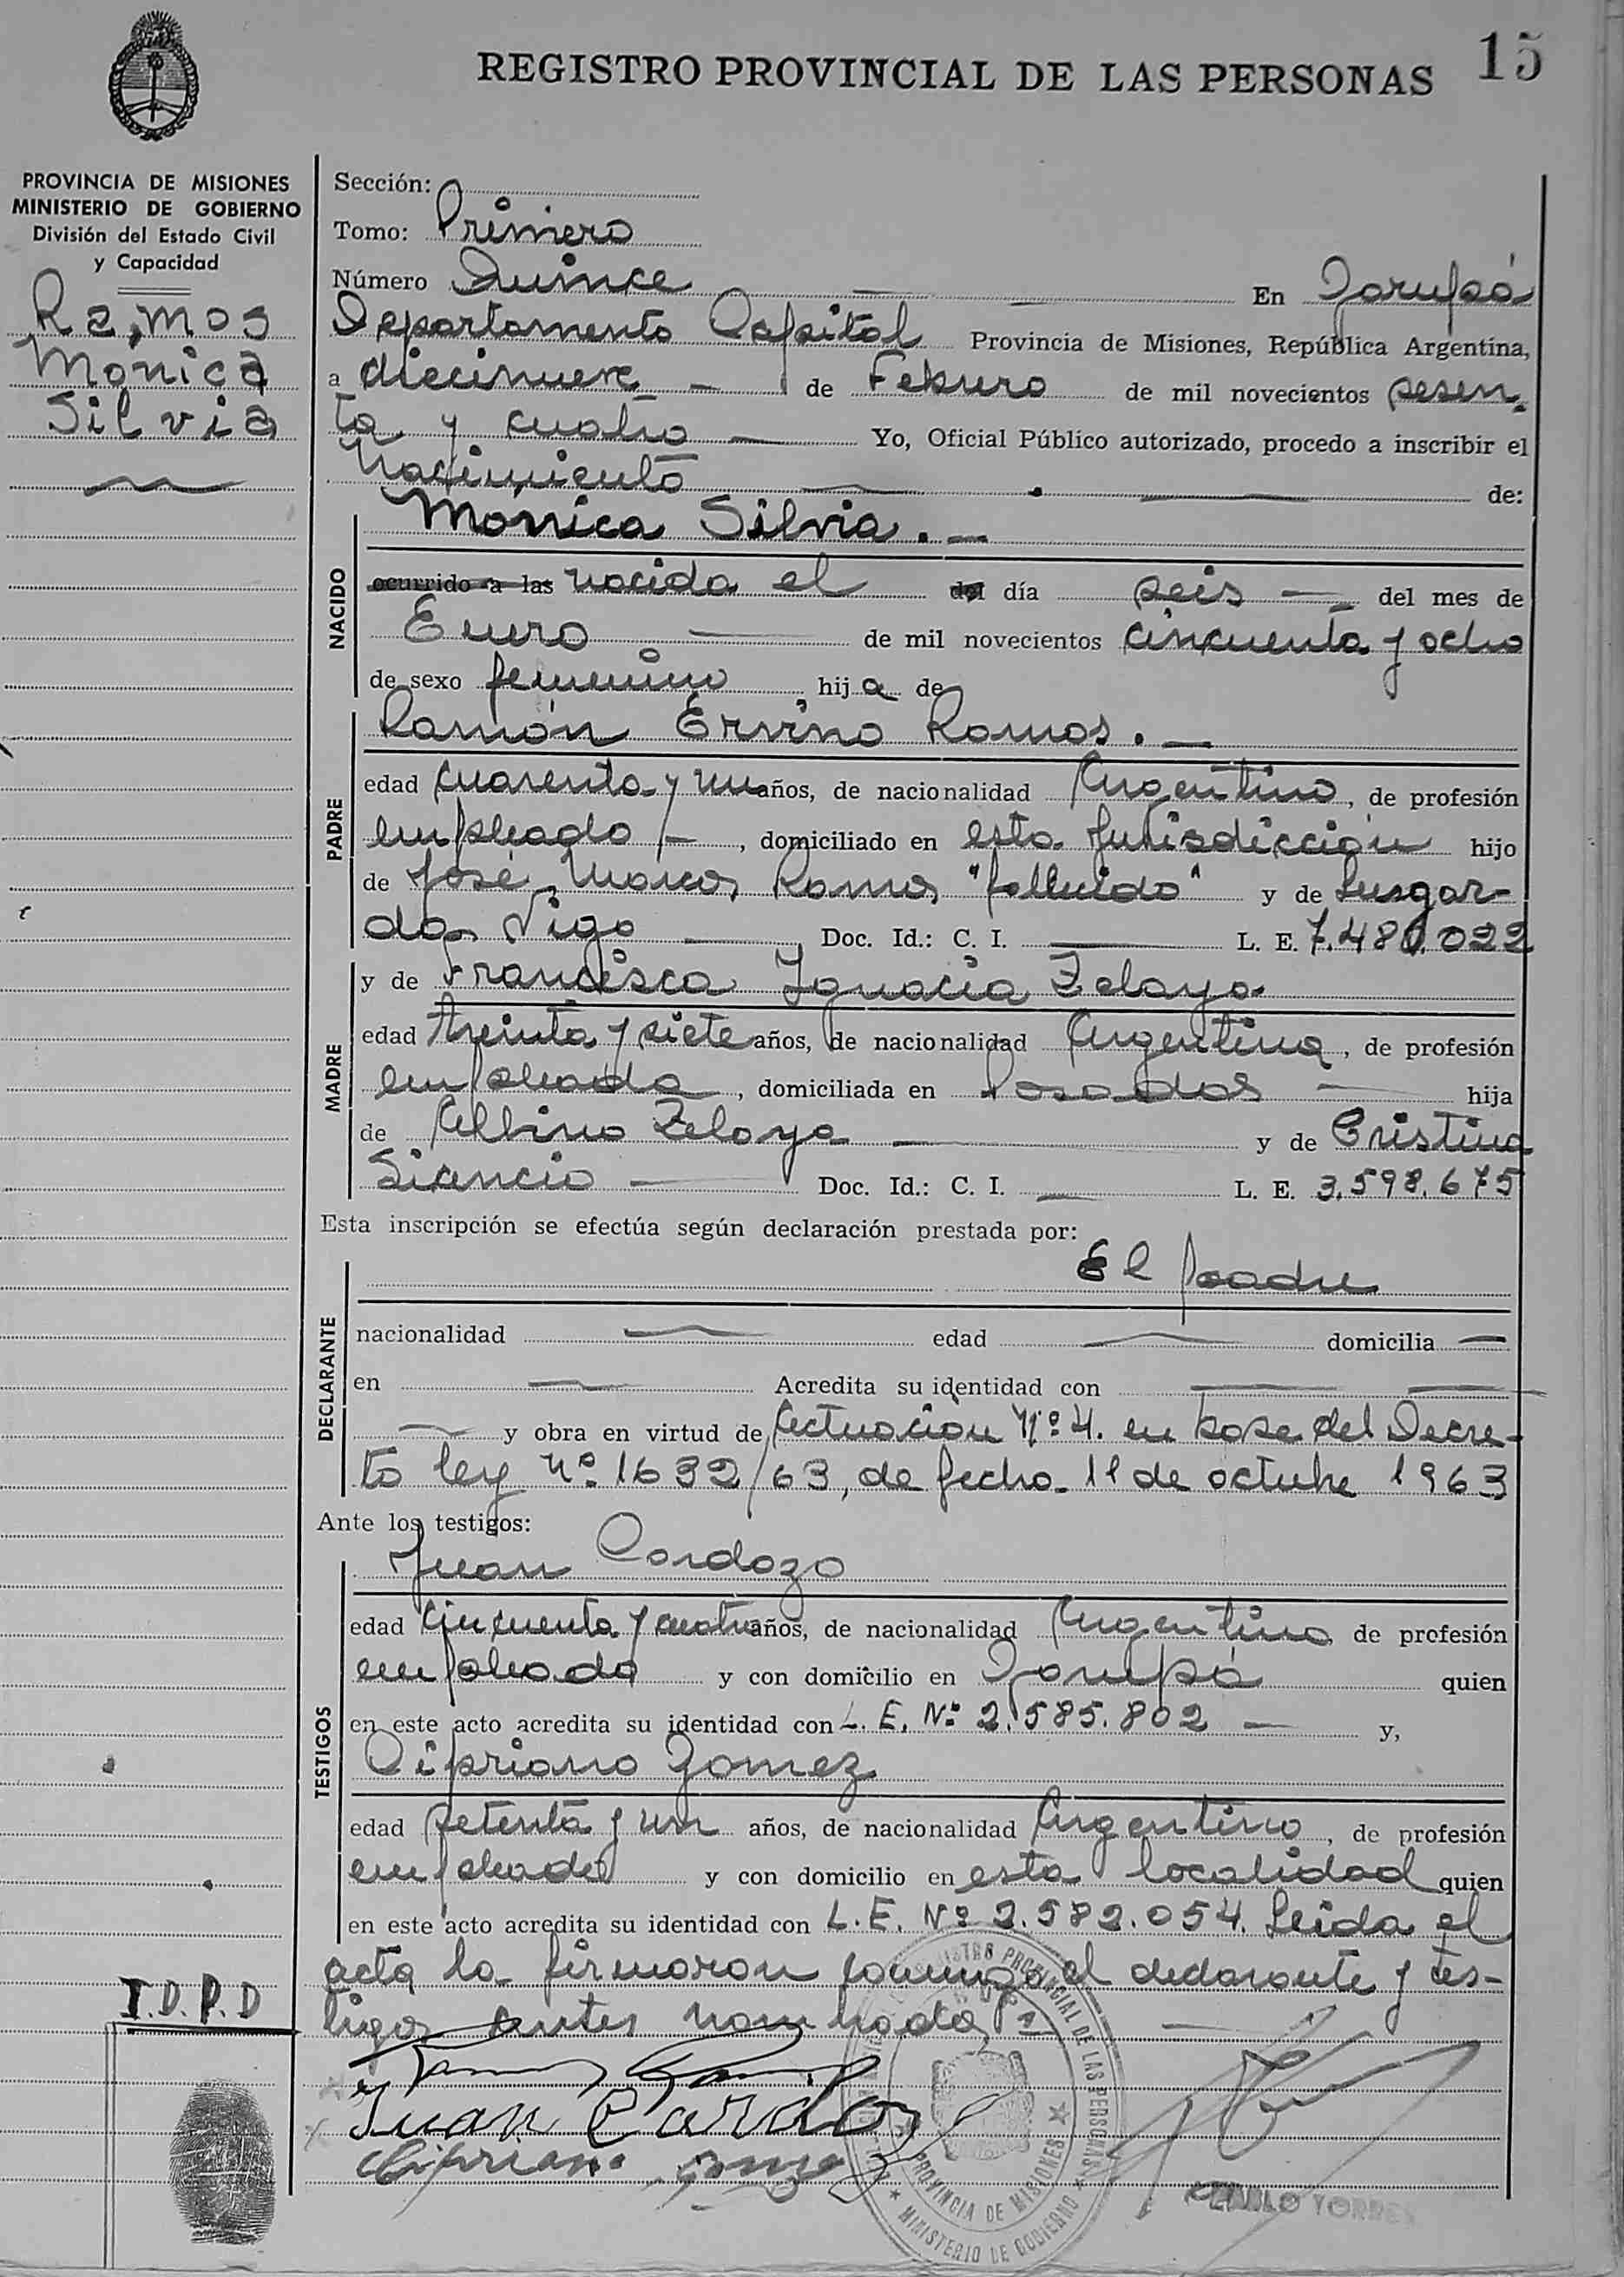 REGISTRO PROVINCIAL DE LAS PERSONAS 15
PROVINCIA DE MISIONES
MINISTERIO DE GOBIERNO
División del Estado Civil
y Capacidad
Ramos
Monica
Silvia
Sección:
Tomo: Primero
Número Quince En Garupá
Departamento Capital Provincia de Misiones, República Argentina,
a diecinueve de Febrero de mil novecientos sesen-
ta y cuatro Yo, Oficial Público autorizado, procedo a inscribir el
Nacimiento de:
NACIDO
Monica Silvia.
ocurrido a las nacida el del día seis del mes de
Enero de mil novecientos cincuenta y ocho
de sexo femenino, hija de
PADRE
Ramón Ervino Ramos.
edad cuarenta y un años, de nacionalidad Argentino, de profesión
empleado, domiciliado en esta Jurisdicción hijo
de José Marcos Ramos "fallecido" y de Lusgar-
da Vigo, Doc. Id.: C. I. L. E. 7.480.022
MADRE
y de Francisca Ignacia Zelaya
edad treinta y siete años, de nacionalidad Argentina, de profesión
empleada, domiciliada en Posadas hija
de Albino Zelaya y de Cristina
Doc. Id.: C. I. L. E. 3.598.675
Esta inscripción se efectúa según declaración prestada por:
DECLARANTE
El padre
nacionalidad edad domicilia
en Acredita su identidad con
y obra en virtud de Actuación Nº 4. en base del Decre-
to ley nº 1632/63, de fecha 11 de octubre 1963
Ante los testigos:
TESTIGOS
Juan Cardozo
edad cincuenta y cuatro años, de nacionalidad Argentino de profesión
empleado y con domicilio en Garupá quien
en este acto acredita su identidad con L. E. Nº 2.585.802 y,
Cipriano Gomez
edad setenta y un años, de nacionalidad Argentino, de profesión
empleado y con domicilio en esta localidad quien
en este acto acredita su identidad con L. E. Nº 2.582.054. Leida el
acta la firmaron conmigo el declarante y tes-
tigos antes nombrados
I.D.P.D
Juan Cardozo
Cipriano Gomez
REGISTRO PROVINCIAL DE LAS PERSONAS
PROVINCIA DE MISIONES
MINISTERIO DE GOBIERNO
TORRES